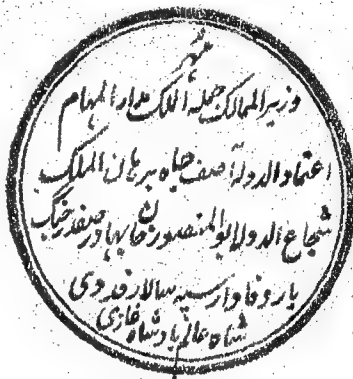 مهر
وزیر الممالک جملة الملک مدار المهام
اعتماد الدوله آصف جاه برهان الملک
شجاع الدوله ابو المنصور خان بهادر صفدر جنگ
یار وفادار سپه سالار فدوی
شاه عالم بادشاه غازی